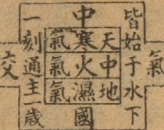 氣
皆始于水下
天中地
中寒火濕國
氣氣氣
一刻通主一歲